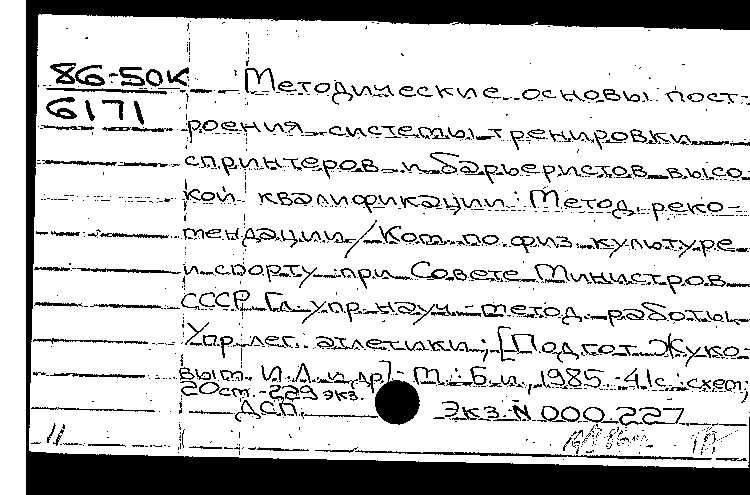 86-50К
6171
Методические основы пост-
роения системы тренировки
спринтеров и барьеристов высо
кой квалификации: Метод. реко-
мендации / Ком. по физ. культуре
и спорту при Совете Министров
СССР Гл. упр. науч.-метод. работы,
Упр. лег. атлетики; [Подгот. Жуко-
вым И.Л. и др.]- М.: Б.и., 1985. -41с.: схем;
20см. -229 экз.
ДСП. Экз. N 000.227
11